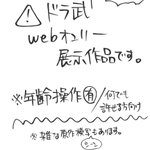 ⚠ ドラ武
webオンリー
展示作品です。
※年齢操作有/何でも
許せる方向け
※雑な現パロ要素もあります。